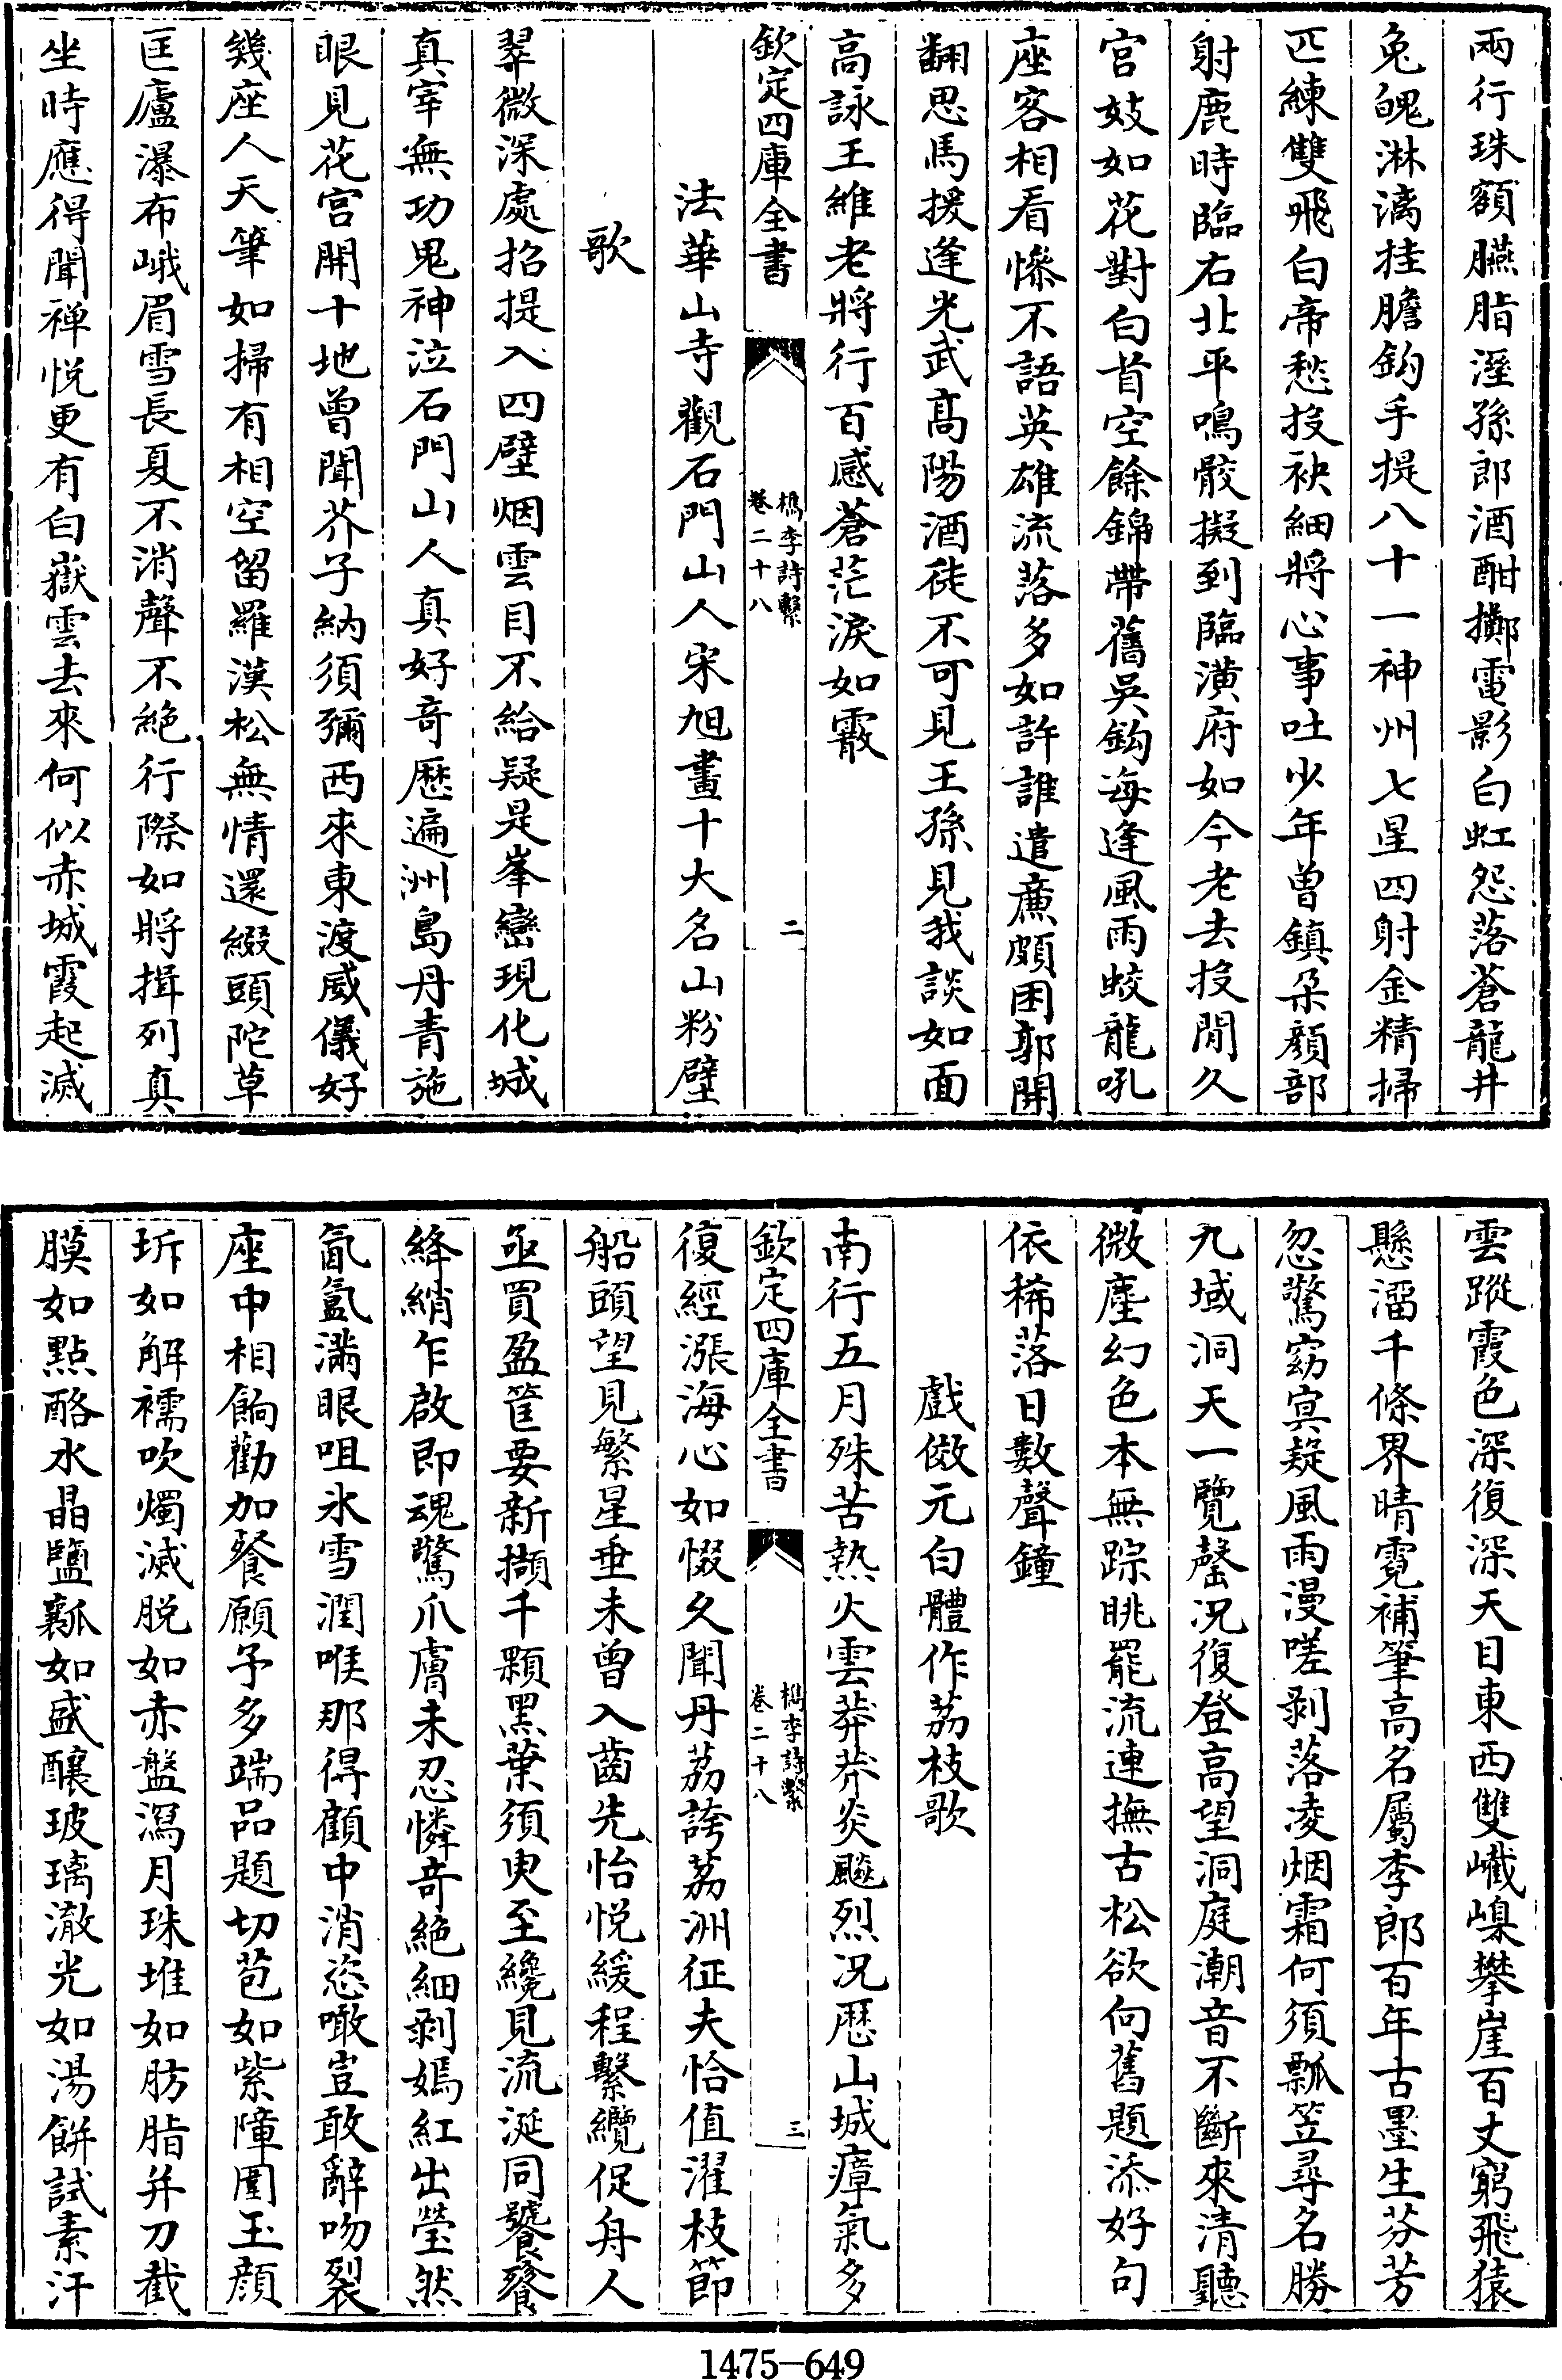 兩行珠額臙脂溼孫郎酒酣擲電影白虹怨落蒼龍井
兔魄淋漓挂膽鈎手提八十一神州七星四射金精掃
匹練雙飛白帝愁投袂細將心事吐少年曾鎮朵顏部
射鹿時臨右北平鳴骹擬到臨潢府如今老去投閒久
宮妓如花對白首空餘錦帶舊吳鈎每逢風雨蛟龍吼
座客相看慘不語英雄流落多如許誰遣廉頗困郭開
翻思馬援逢光武高陽酒徒不可見王孫見我談如面
高詠王維老將行百感蒼茫淚如霰
欽定四庫全書
檇李詩繫
卷二十八
二
法華山寺觀石門山人宋旭畫十大名山粉壁
歌
翠微深處招提入四壁烟雲目不給疑是峯巒現化城
真宰無功鬼神泣石門山人真好奇歷遍洲島丹青施
眼見花宮開十地曾聞芥子納須彌西來東渡威儀好
幾座人天筆如掃有相空留羅漢松無情還綴頭陀草
匡廬瀑布峨眉雪長夏不消聲不絶行際如將揖列真
坐時應得聞禪悅更有白嶽雲去來何似赤城霞起滅
雲蹤霞色深復深天目東西雙巇嵲攀崖百丈窮飛猿
懸溜千條界晴霓補筆高名屬李郎百年古墨生芬芳
忽驚窈冥疑風雨漫嗟剥落凌烟霜何須瓢笠尋名勝
九域洞天一覽罄况復登高望洞庭潮音不斷來清聽
微塵幻色本無踪眺罷流連撫古松欲向舊題添好句
依稀落日數聲鐘
戲倣元白體作荔枝歌
南行五月殊苦熱火雲莽莽炎飈烈况歴山城瘴氣多
復經漲海心如惙久聞丹荔誇荔洲征夫恰值濯枝節
船頭望見繁星垂未曾入齒先怡悅緩程繫纜促舟人
亟買盈筐要新擷千顆黑葉須臾至纔見流涎同饕餮
絳綃乍啟即魂驚爪膚未忍憐奇絶細剥嫣紅出瑩然
氤氳滿眼咀氷雪潤喉那得顧中消恣噉豈敢辭吻裂
座中相餉勸加餐願予多端品題切苞如紫障圍玉顏
坼如解襦吹燭滅脱如赤盤瀉月珠堆如肪脂并刀截
膜如點酪水晶鹽瓤如盛釀玻璃澈光如湯餅試素汗
欽定四庫全書
檇李詩繫
卷二十八
三
1475-649